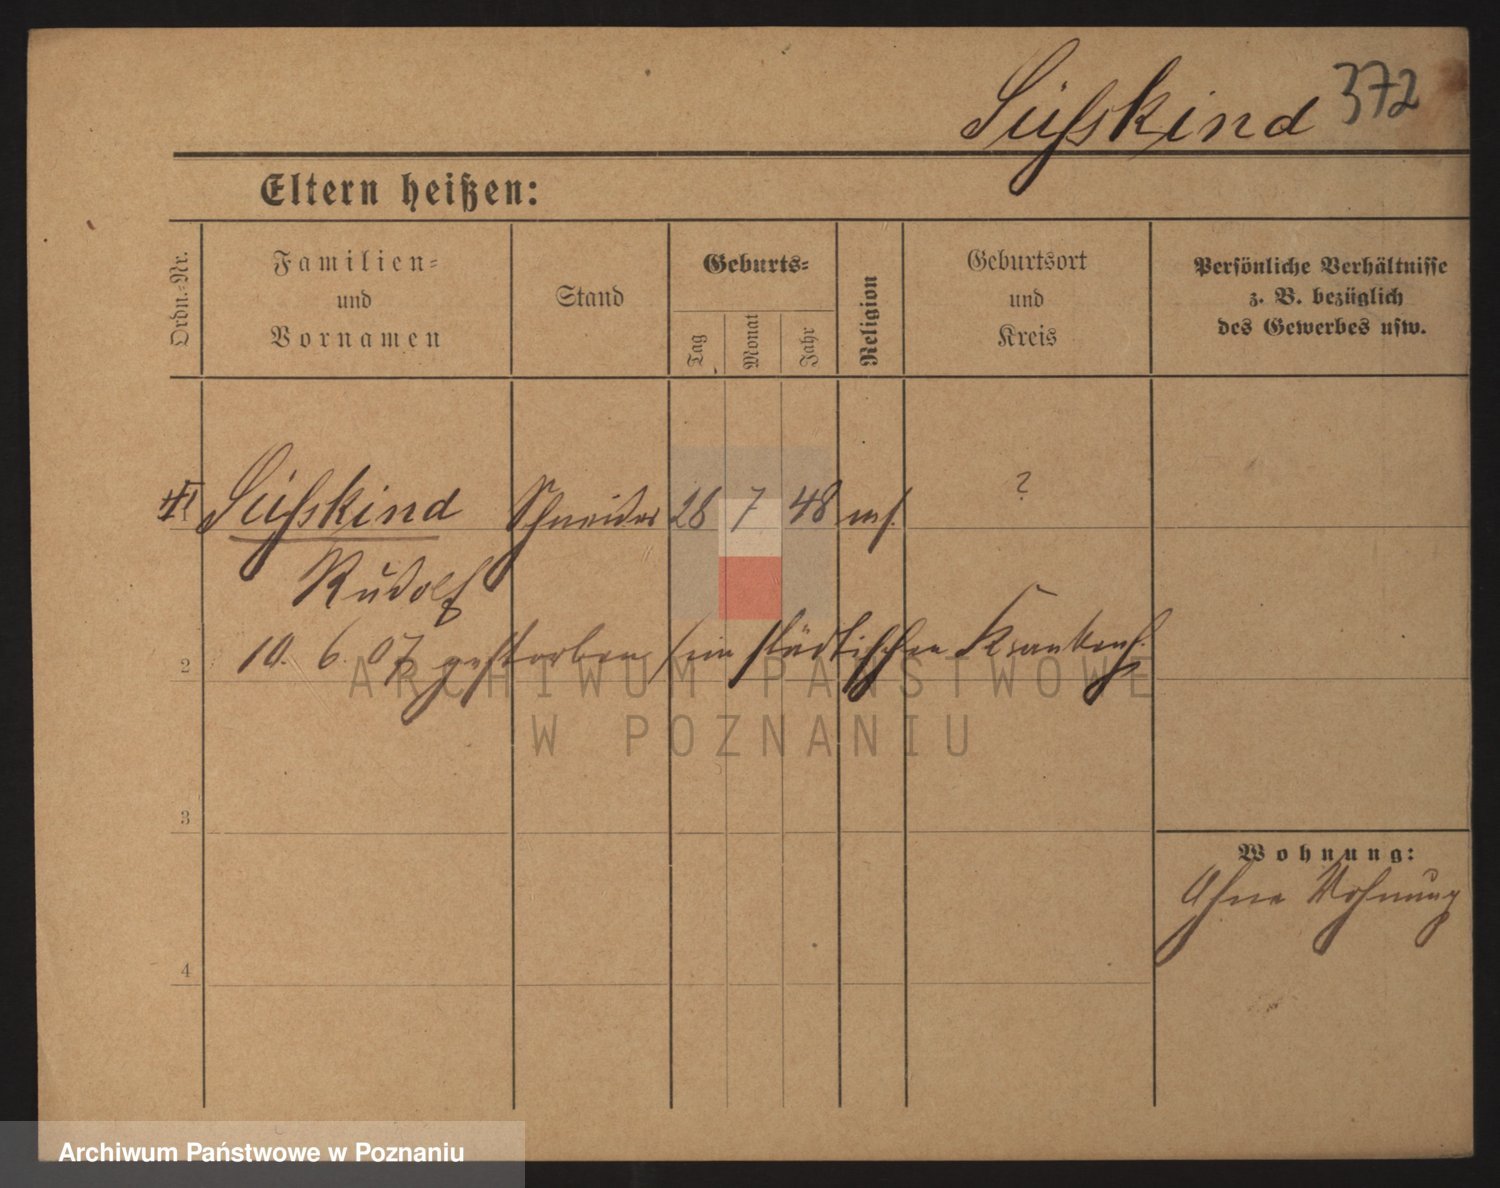 Süßskind 372
Eltern heißen:
Ordn.-Nr.
Familien-
und
Vornamen
Stand
Geburts-
Tag
Monat
Jahr
Religion
Geburtsort
und
Kreis
Persönliche Verhältnisse
z. B. bezüglich
des Gewerbes usw.
Süßskind Schneider 28 7 48 ?
Rudolf
2 10. 6. 07 gestorben im städtischen Krankenh.
ARCHIWUM PAŃSTWOWE
W POZNANIU
3
Wohnung:
Ohne Wohnung
4
Archiwum Państwowe w Poznaniu